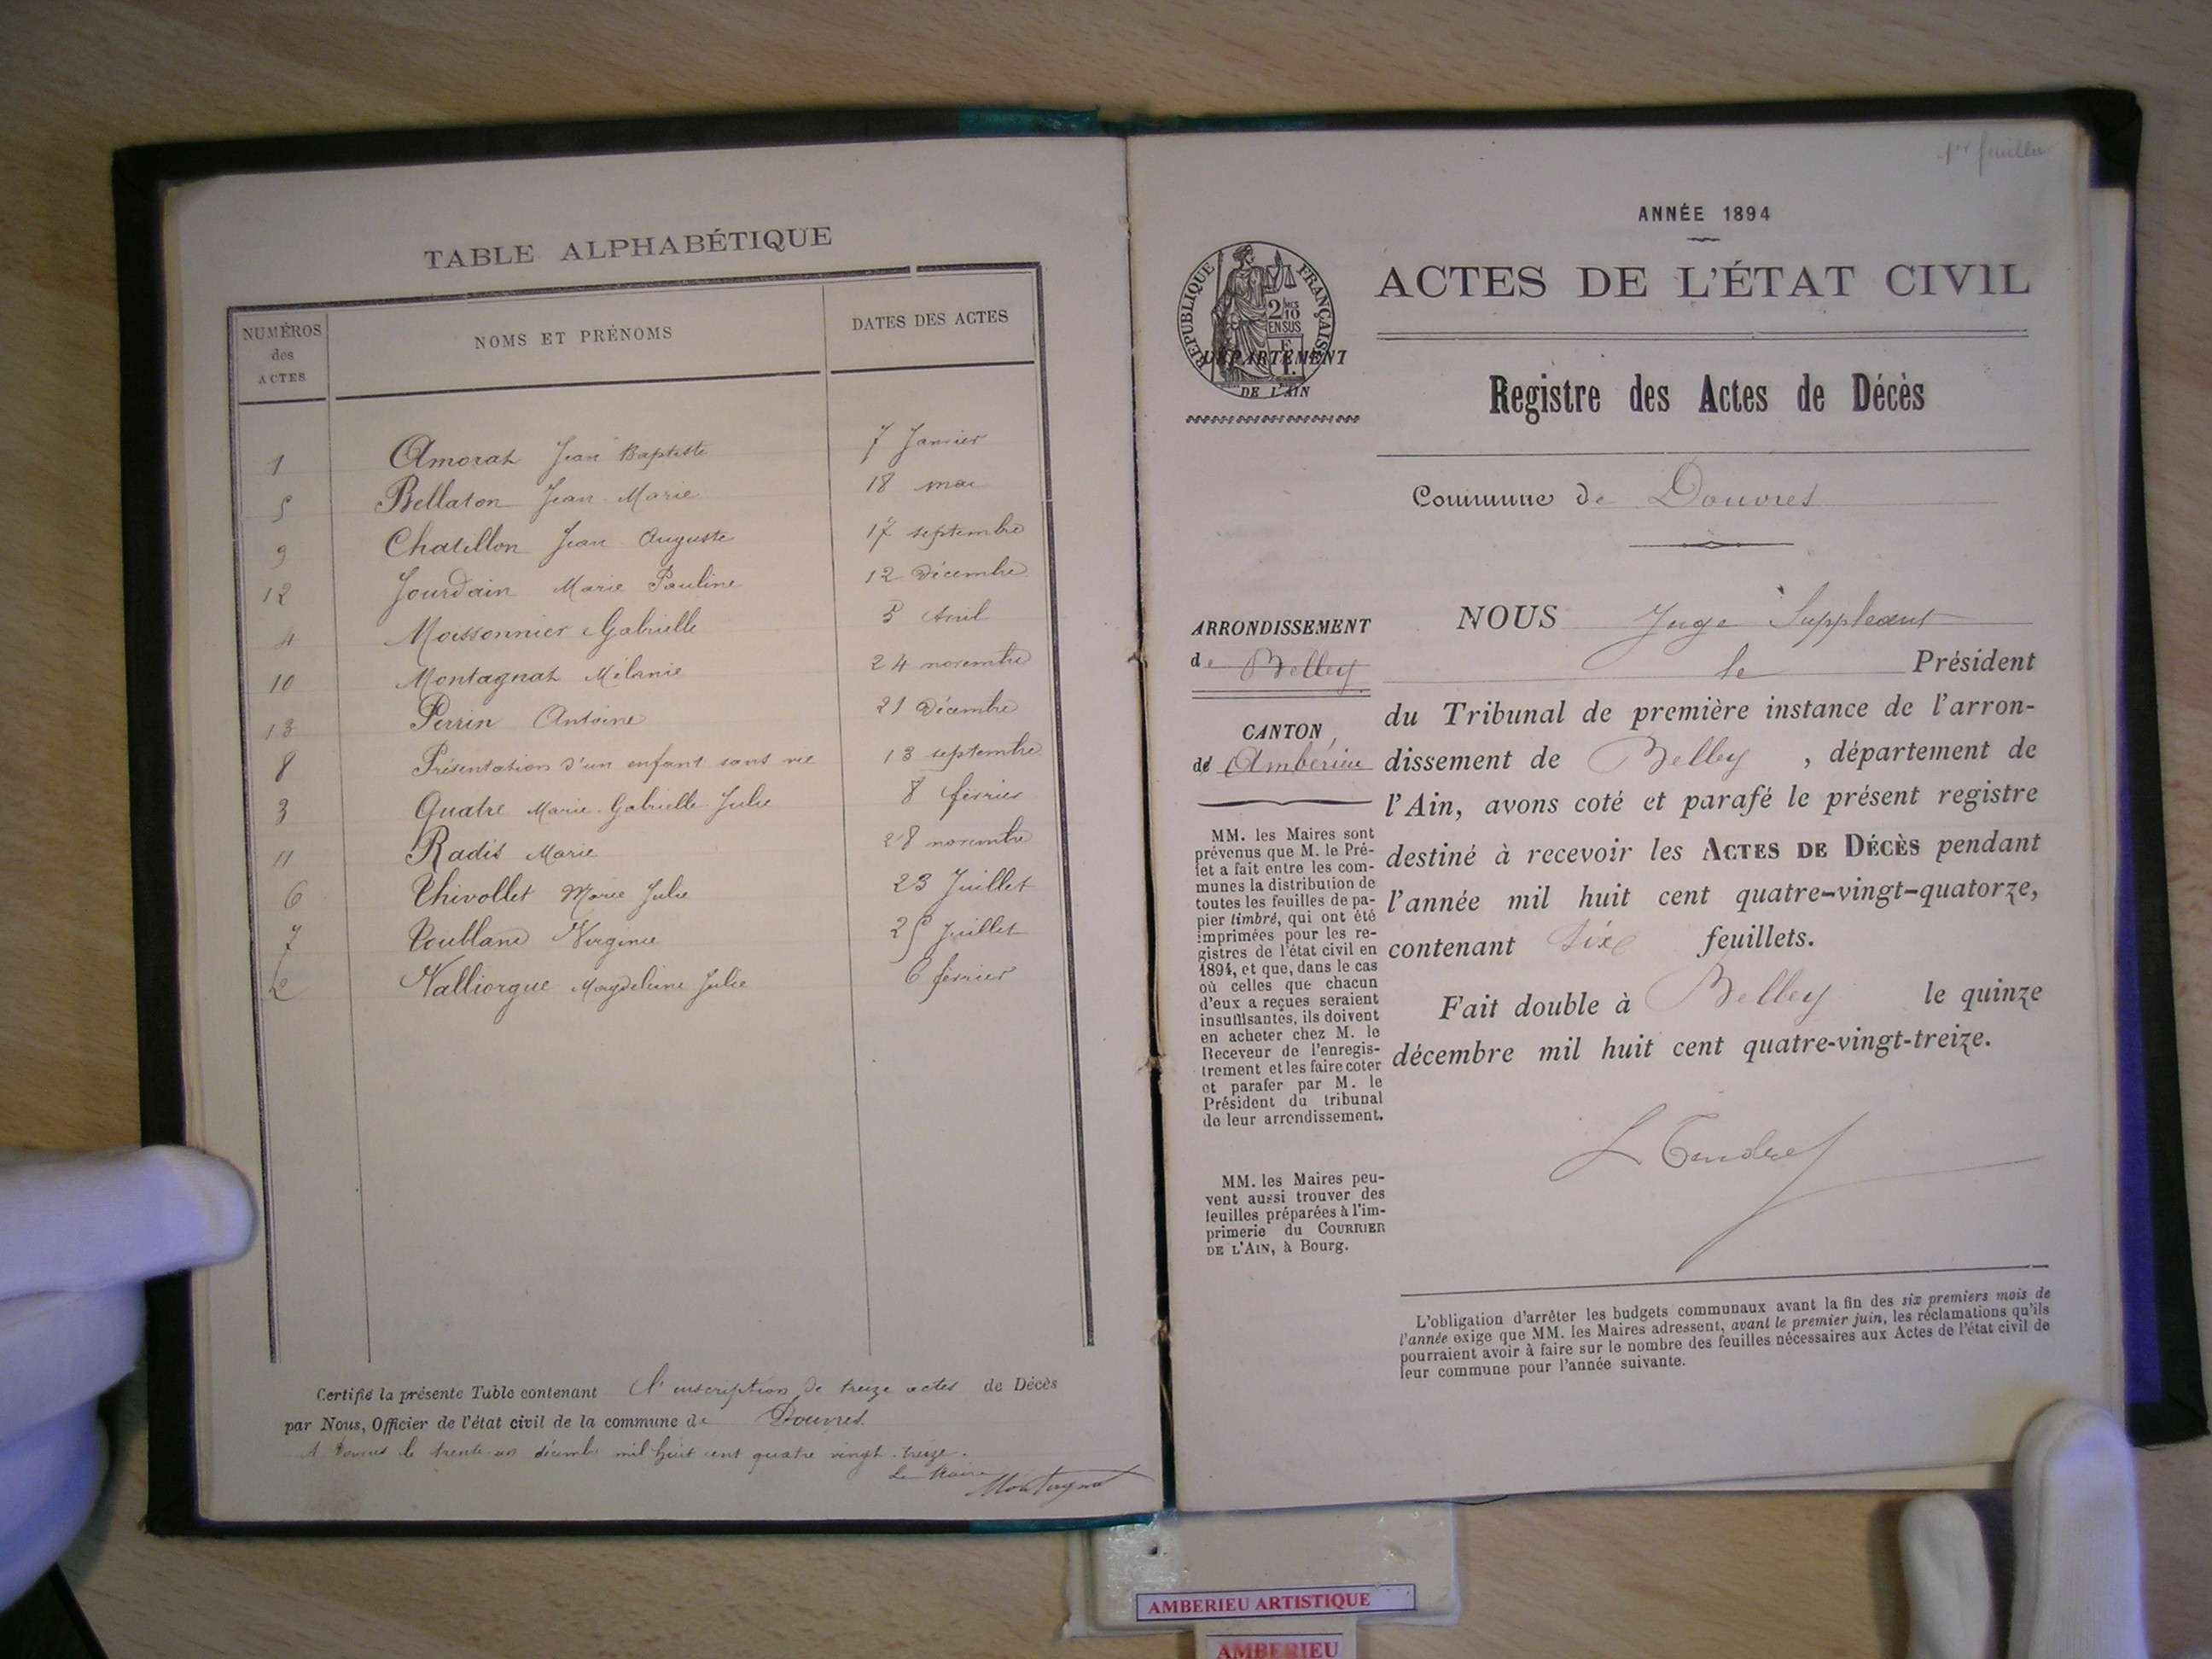 TABLE ALPHABÉTIQUE
NUMÉROS des ACTES NOMS ET PRÉNOMS DATES DES ACTES
1 Amorat Jean Baptiste 7 Janvier
5 Bellaton Jean Marie 18 mai
9 Chatillon Jean Auguste 17 septembre
12 Jourdain Marie Pauline 12 Décembre
4 Moissonnier Gabrielle 5 Avril
10 Montagnat Mélanie 24 novembre
13 Perrin Antoine 21 Décembre
8 Présentation d'un enfant sans vie 13 septembre
3 Quatre Marie Gabrielle Julie 8 février
11 Radis Marie 28 novembre
6 Thivollet Marie Julie 23 Juillet
7 Virginie 25 Juillet
2 Valliorgue Magdeleine Julie 6 février
Certifié la présente Table contenant l'inscription de treize actes de Décès
par Nous, Officier de l'état civil de la commune de Douvres.
A Douvres le trente un décembre mil huit cent quatre vingt treize.
Le Maire
Montagnat
1er feuillet
ANNÉE 1894
ACTES DE L'ÉTAT CIVIL
RÉPUBLIQUE FRANÇAISE
2/10 EN SUS
DÉPARTEMENT
DE L'AIN
Registre des Actes de Décès
Commune de Douvres
ARRONDISSEMENT
de Belley
CANTON
de Ambérieu
MM. les Maires sont
prévenus que M. le Pré-
fet a fait entre les com-
munes la distribution de
toutes les feuilles de pa-
pier timbré, qui ont été
imprimées pour les re-
gistres de l'état civil en
1894, et que, dans le cas
où celles que chacun
d'eux a reçues seraient
insuffisantes, ils doivent
en acheter chez M. le
Receveur de l'enregis-
trement et les faire coter
et parafer par M. le
Président du tribunal
de leur arrondissement.
MM. les Maires peu-
vent aussi trouver des
feuilles préparées à l'im-
primerie du COURRIER
DE L'AIN, à Bourg.
NOUS Juge Suppléant
le Président
du Tribunal de première instance de l'arron-
dissement de Belley, département de
l'Ain, avons coté et parafé le présent registre
destiné à recevoir les ACTES DE DÉCÈS pendant
l'année mil huit cent quatre-vingt-quatorze,
contenant six feuillets.
Fait double à Belley le quinze
décembre mil huit cent quatre-vingt-treize.
L'obligation d'arrêter les budgets communaux avant la fin des six premiers mois de
l'année exige que MM. les Maires adressent, avant le premier juin, les réclamations qu'ils
pourraient avoir à faire sur le nombre des feuilles nécessaires aux Actes de l'état civil de
leur commune pour l'année suivante.
AMBERIEU ARTISTIQUE
AMBERIEU